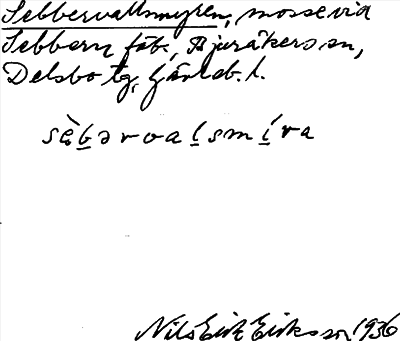 Sebbervallsmyren, mosse vid
Sebbern fäb., Bjuråkers sn,
Delsbo tg, Gävleb. l.
sèb̲ərval̲smi̲ra
Nils Erik Eriksson 1936